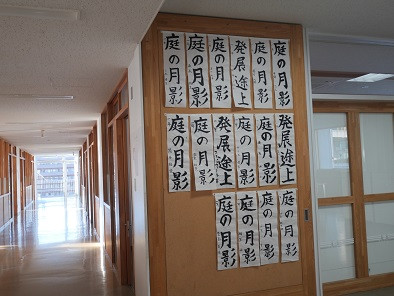 庭の月影
庭の月影
庭の月影
発展途上
庭の月影
庭の月影
庭の月影
庭の月影
発展途上
庭の月影
庭の月影
発展途上
庭の月影
庭の月影
庭の月影
庭の月影